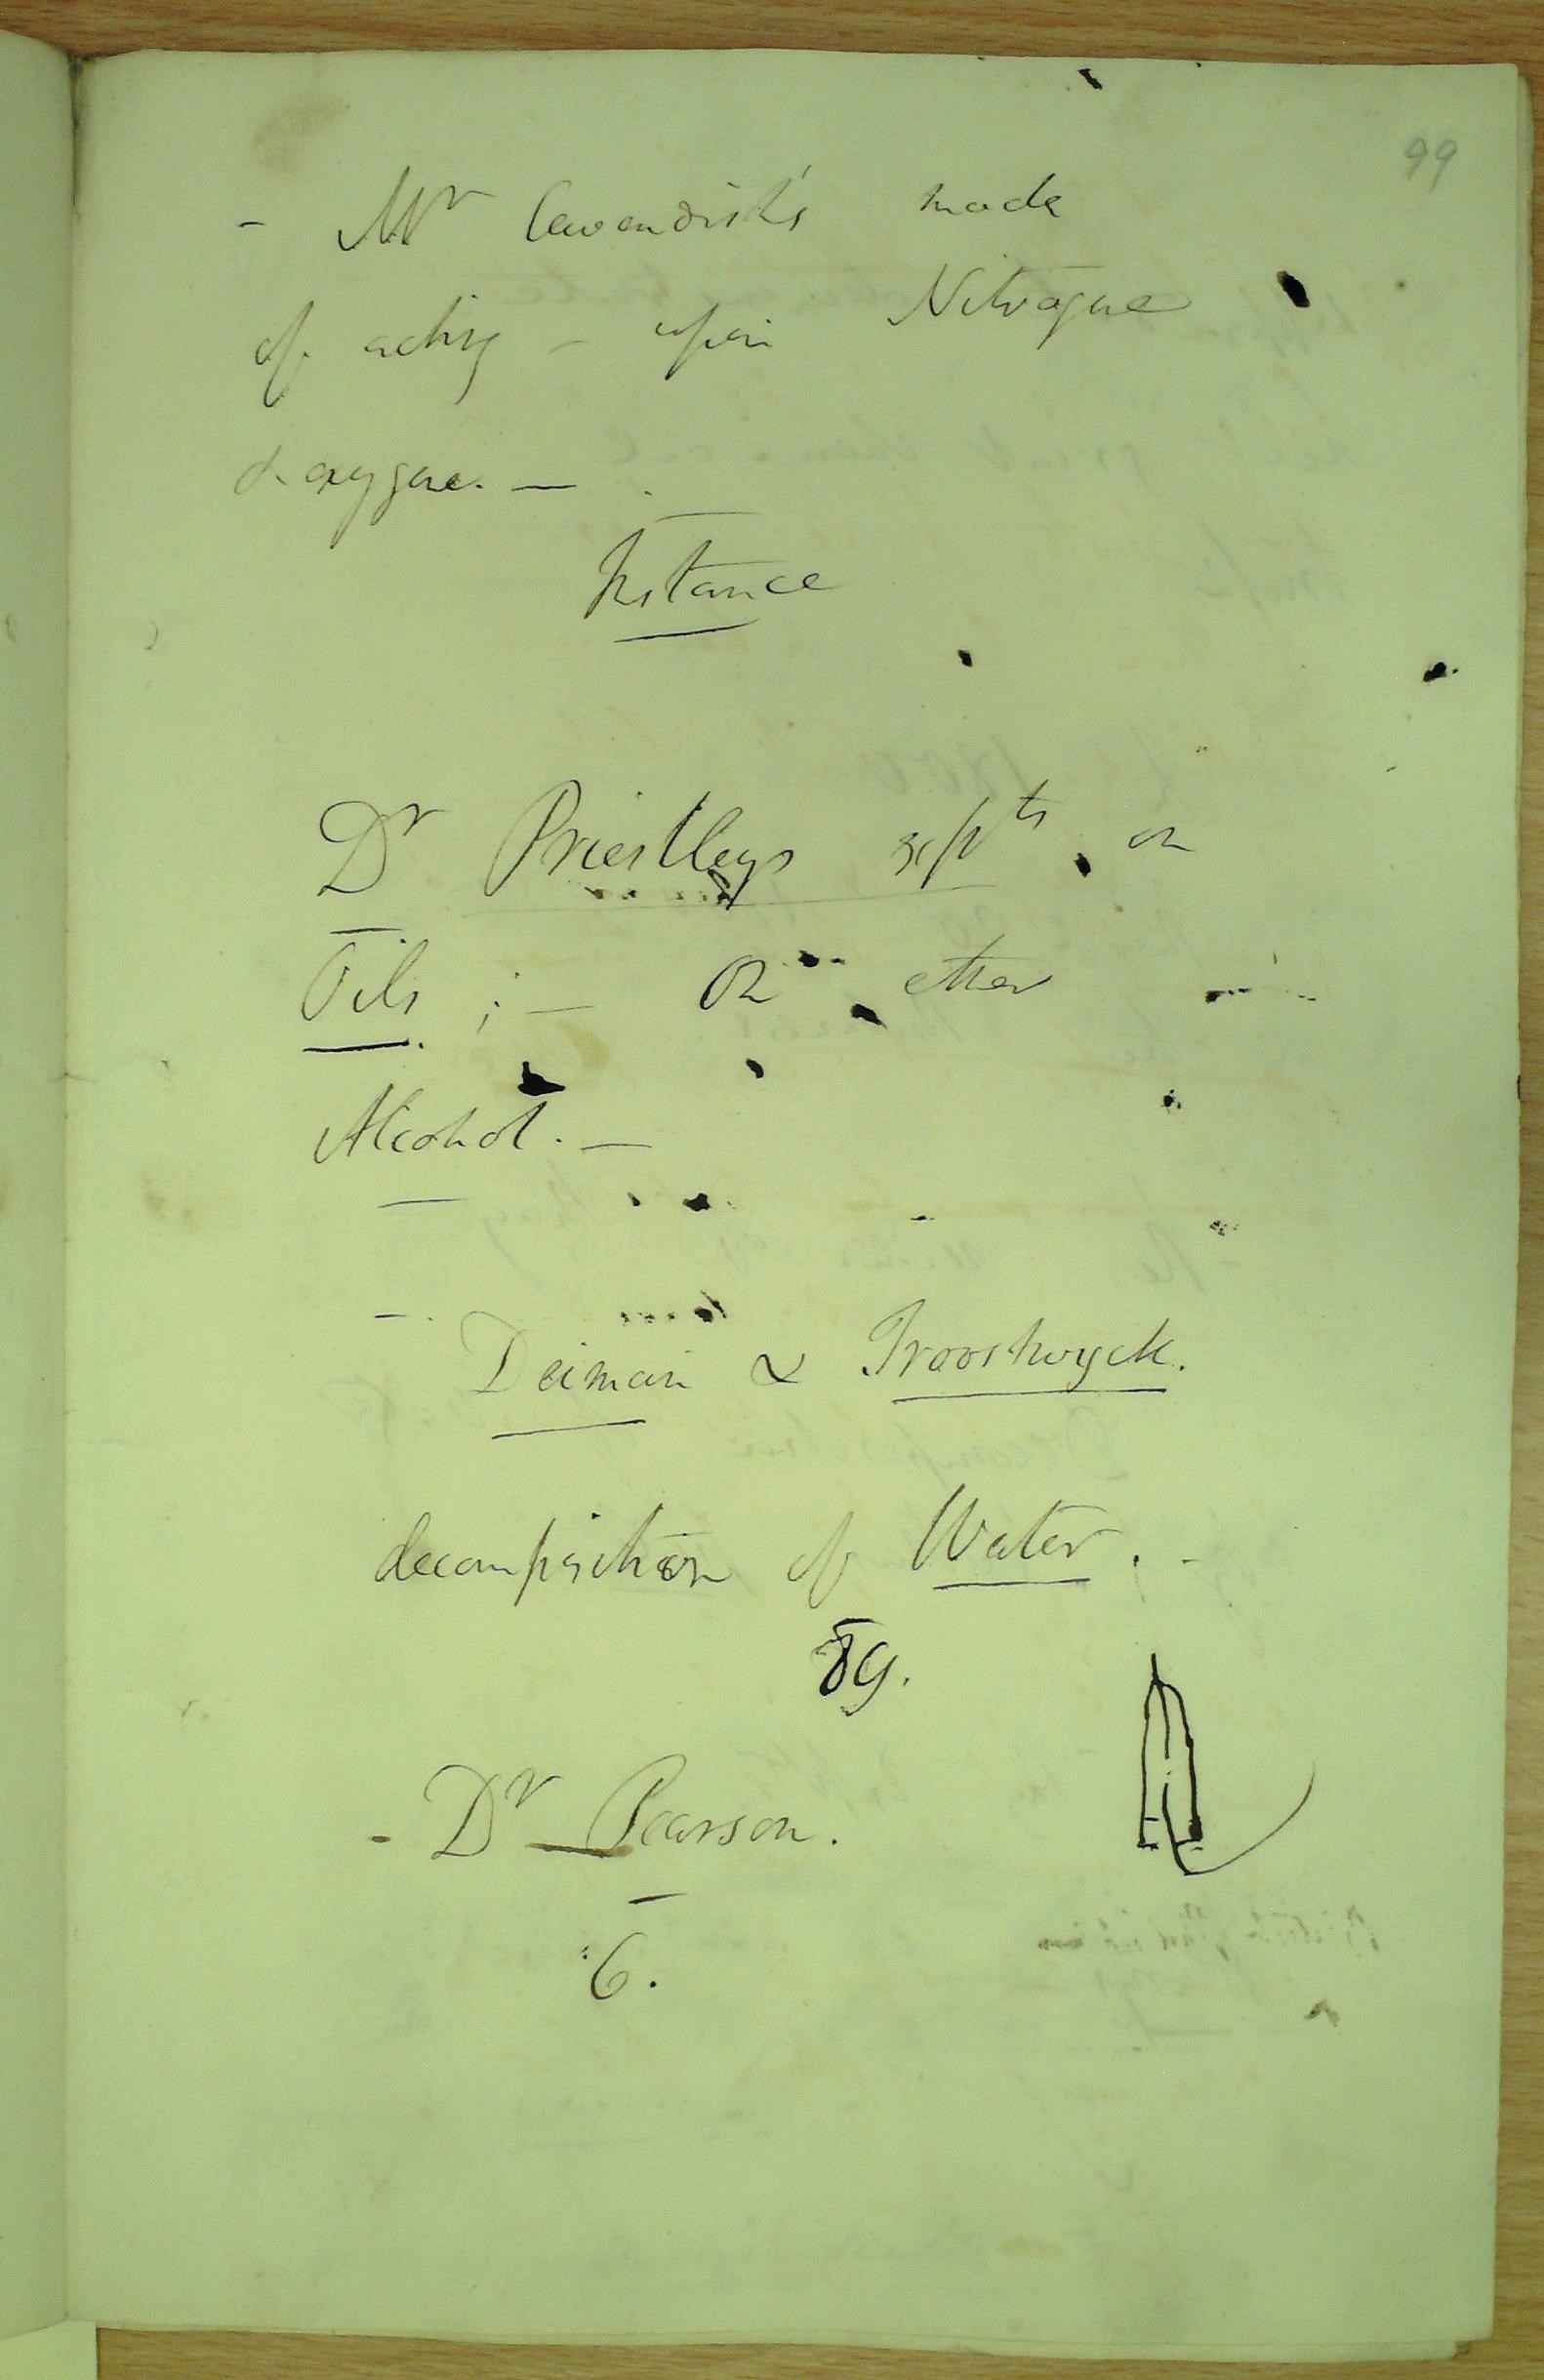 99
- Mr Cavendish's mode
of acting - upon Nitrogene
& oxygene. -
Instance
Dr Priestleys expts on
Oils ; - On ether
Alcohol. -
- Deiman & Troostwyck.
decomposition of Water. -
89.
- Dr Pearson.
6.